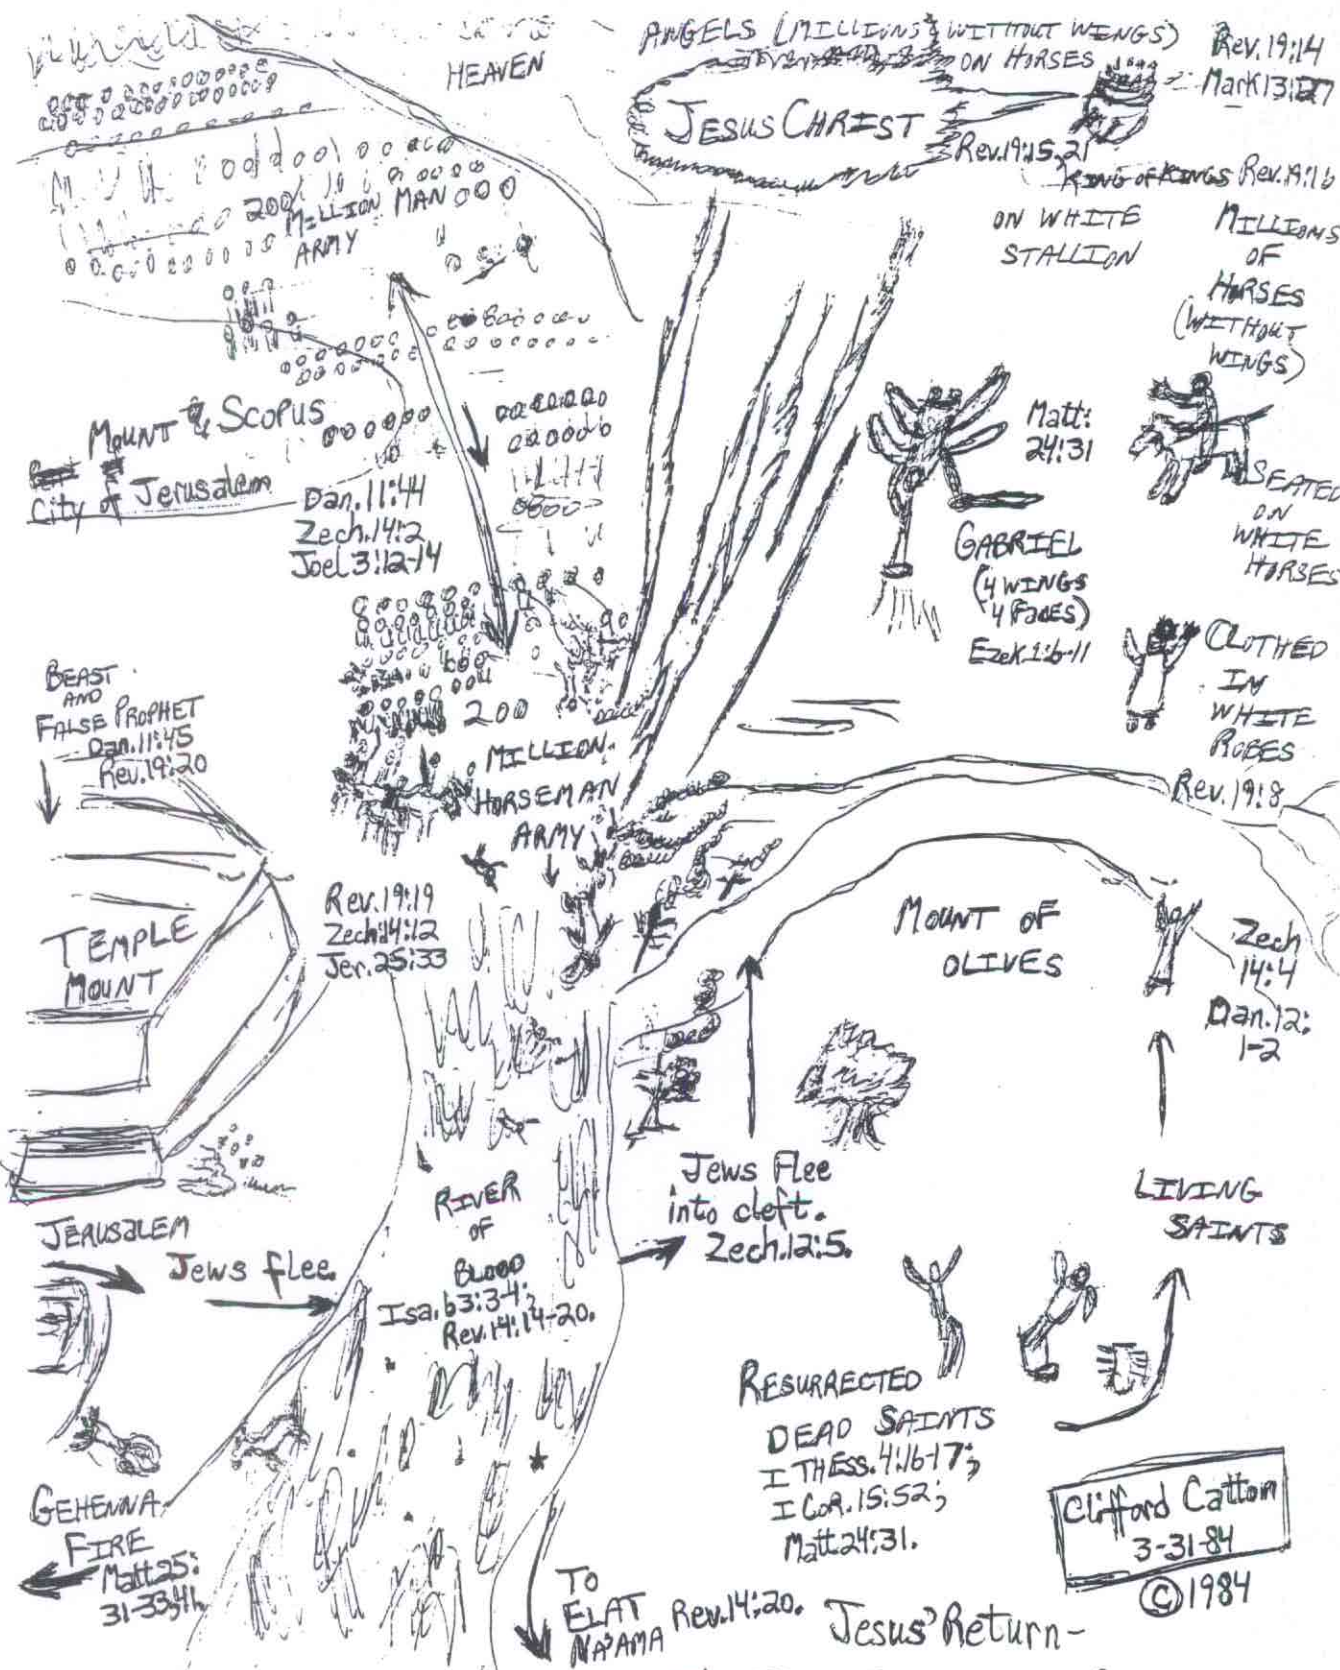 ANGELS (MILLIONS WITHOUT WINGS)
ON HORSES
Rev. 19:14
Mark 13:27
HEAVEN
JESUS CHRIST
Rev. 19:15,21
KING OF KINGS Rev. 19:16
ON WHITE
STALLION
MILLIONS
OF
HORSES
(WITHOUT
WINGS)
200
MILLION MAN
ARMY
MOUNT SCOPUS
City of Jerusalem
Dan. 11:44
Zech. 14:2
Joel 3:12-14
Matt:
24:31
SEATED
ON
WHITE
HORSES
GABRIEL
(4 WINGS
4 FACES)
Ezek. 1:6-11
CLOTHED
IN
WHITE
ROBES
Rev. 19:8
BEAST
AND
FALSE PROPHET
Dan. 11:45
Rev. 19:20
200
MILLION
HORSEMAN
ARMY
Rev. 19:19
Zech. 14:12
Jer. 25:33
TEMPLE
MOUNT
MOUNT OF
OLIVES
Zech
14:4
Dan. 12:
1-2
JERUSALEM
Jews flee.
RIVER
OF
BLOOD
Isa. 63:3-4;
Rev. 14:14-20.
Jews Flee
into cleft.
Zech. 12:5.
LIVING
SAINTS
RESURRECTED
DEAD SAINTS
I THESS. 4:16-17;
I COR. 15:52;
Matt. 24:31.
GEHENNA
FIRE
Matt 25:
31-33,41.
TO
ELAT
NA'AMA
Rev. 14:20.
Clifford Catton
3-31-84
©1984
Jesus' Return-